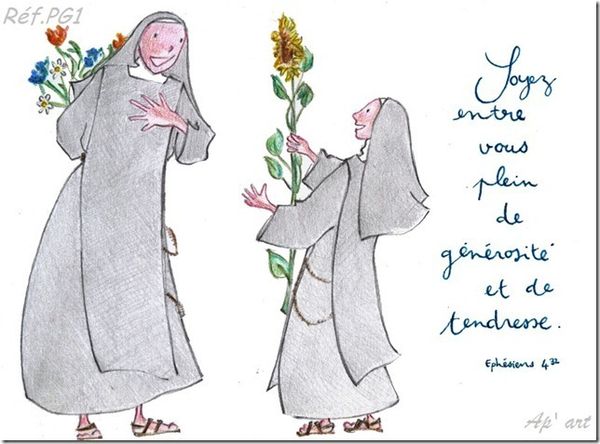 Réf.PG1
Soyez
entre
vous
plein
de
générosité
et de
tendresse.
Ephésiens 4 32
Ap' art